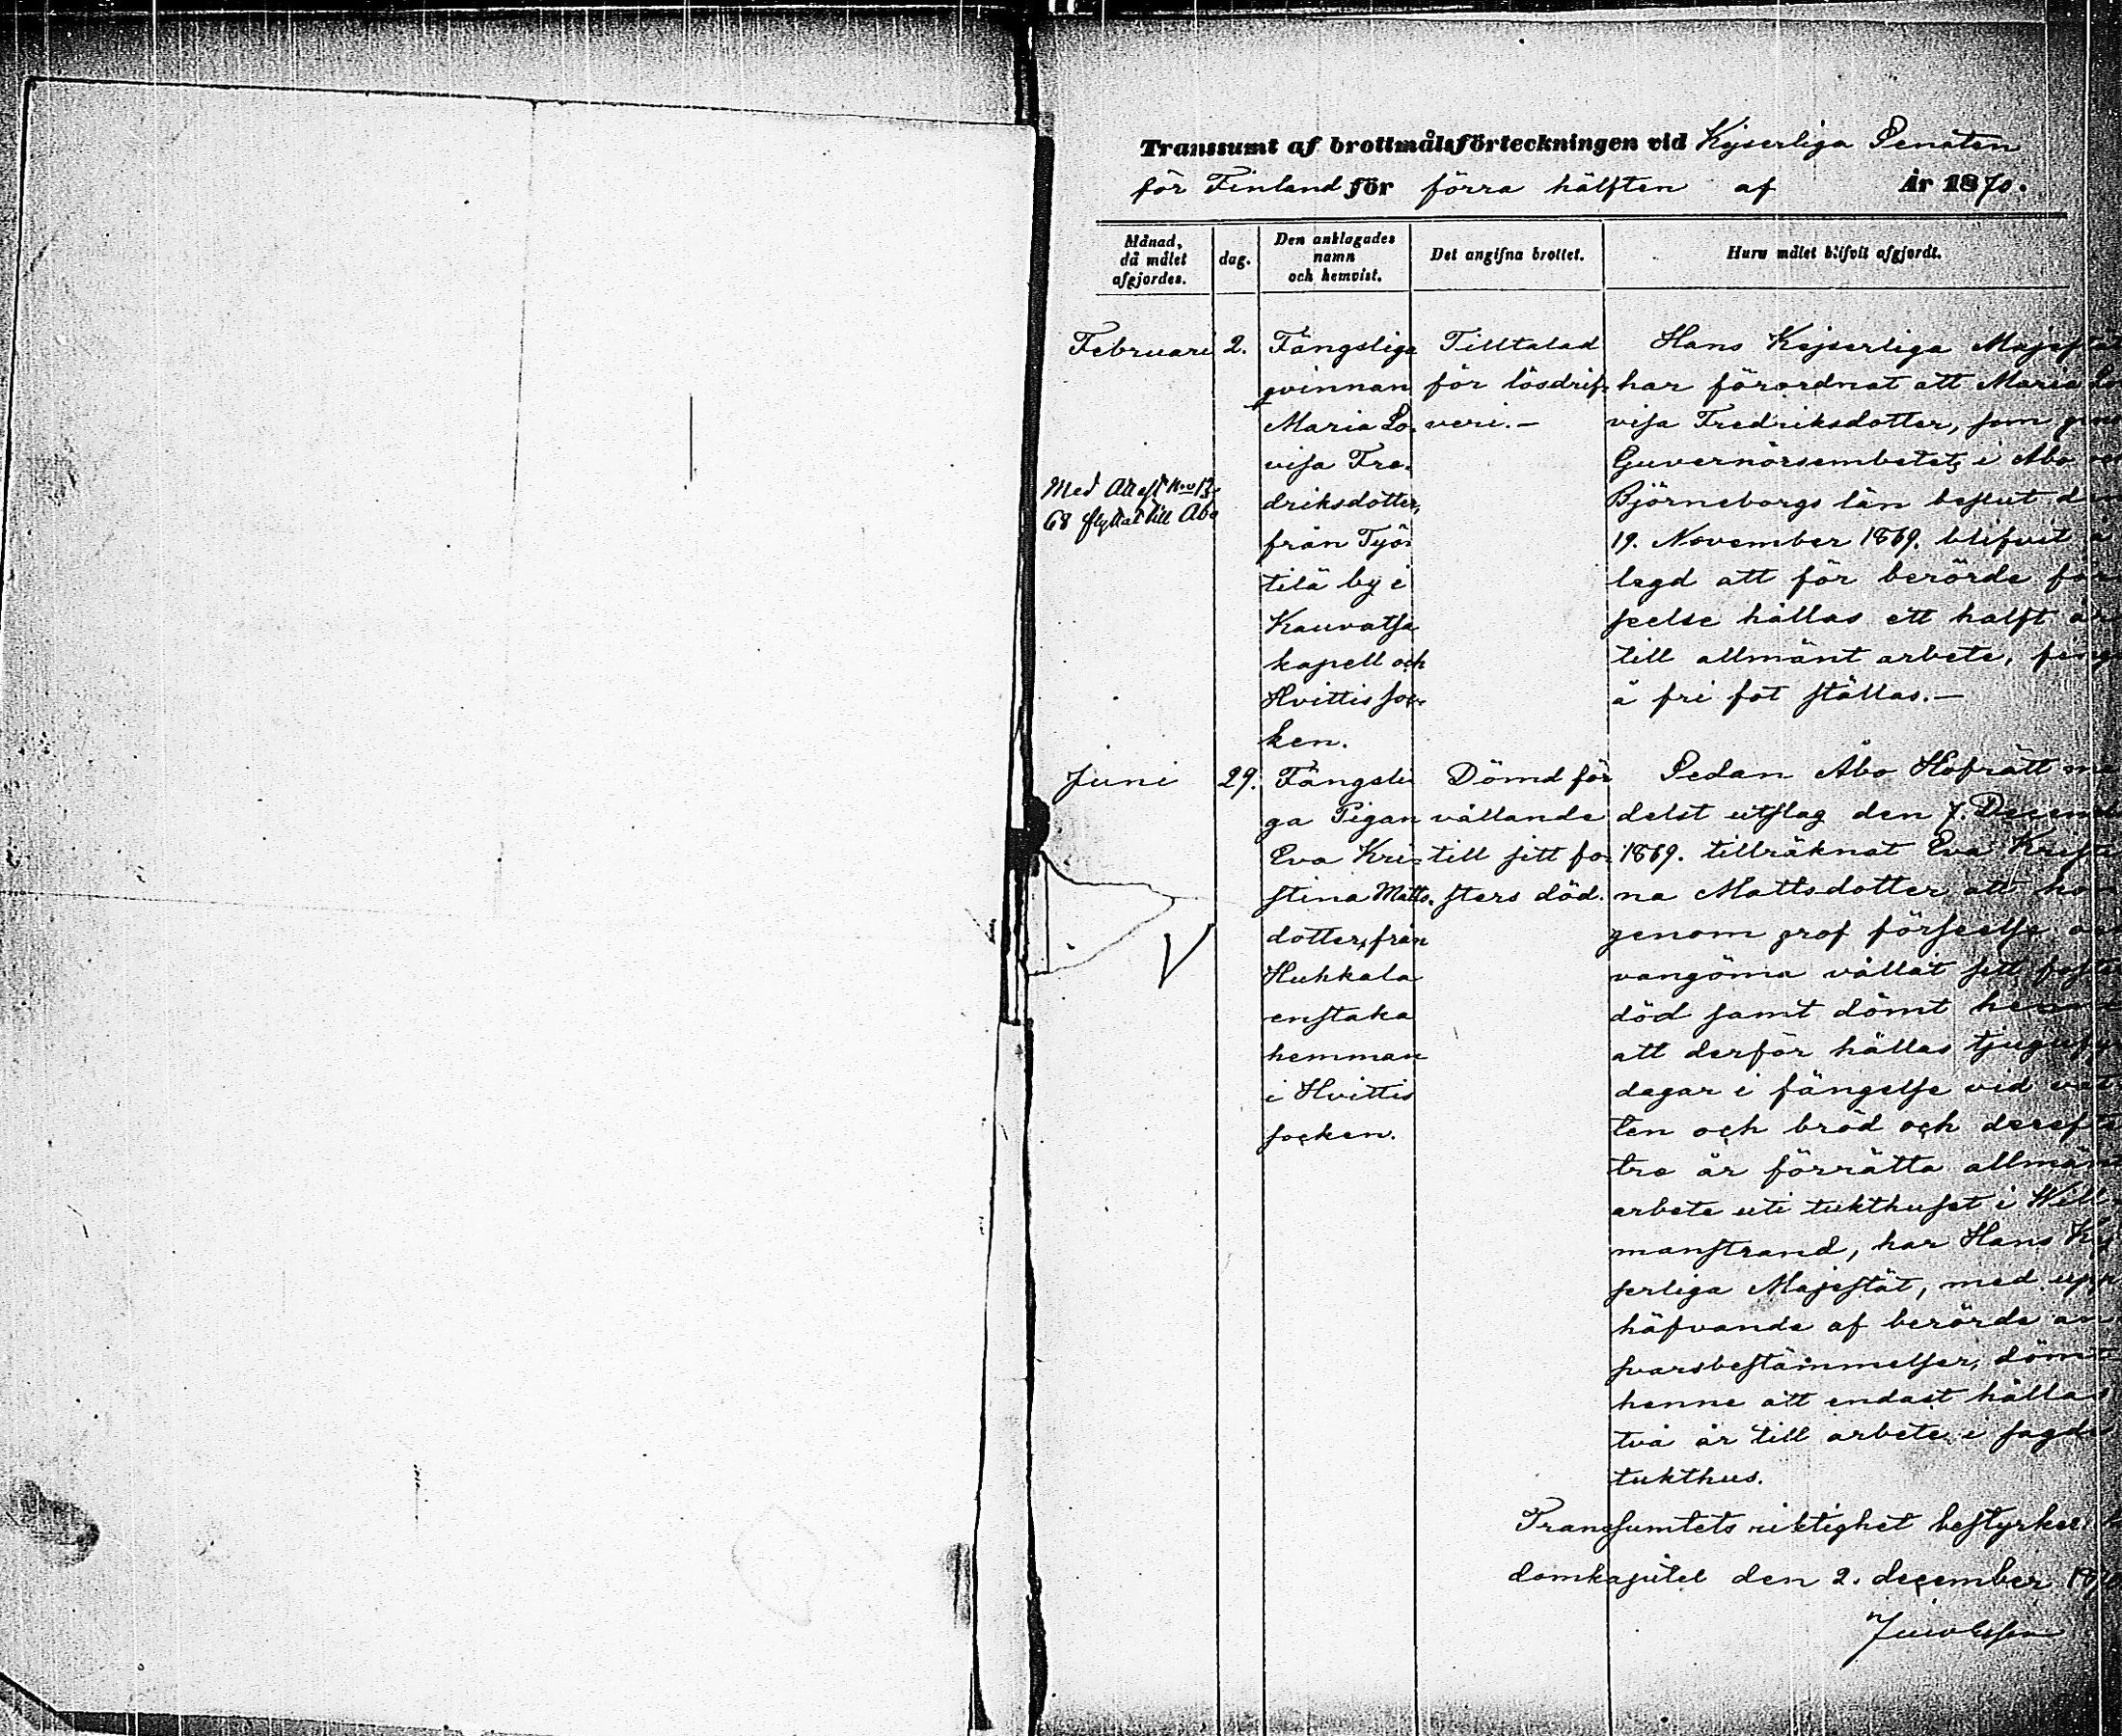 Transsumt af brottmålsförteckningen vid Kejserliga Senaten
för Finland för förra hälften af år 1870.
Månad, då målet afgjordes.
dag.
Den anklagades namn och hemvist.
Det angifna brottet.
Huru målet blifvit afgjordt.
Februari
2.
Fängsliga
qvinnan
Maria Lo-
visa Fre-
driksdotter,
från Työ-
tilä by i
Kauvatsa
kapell och
Hvittis soc-
ken.
Tilltalad
för lösdrif-
veri.-
Hans Kejserliga Majestät
har förordnat att Maria Lo
visa Fredriksdotter, som
Guvernörsembetets i Åbo
Björneborgs län beslut
19. November 1869. blifvit å
legd att för berörde för
seelse hållas ett halft år
till allmänt arbete,
å fri fot ställas.-
Med Attest
68 flyttat till Åbo
Juni
29.
Fängsli-
ga Pigan
Eva Kri-
stina Matts-
dotter, från
Huhkala
enstaka
hemman
i Hvittis
socken.
Dömd för
vållande
till sitt fo-
sters död.
Sedan Åbo Hofrätt me
delst utslag den 7. Decemb
1869. tillräknat Eva Kristi
na Mattsdotter att hon
genom grof förseelse
vangöma vållat sitt foste
död samt dömt henne
att derför hållas
dagar i fängelse vid vat
ten och bröd och derefte
tre år förrätta allmänt
arbete uti tukthuset i Will
manstrand, har Hans Kej
serliga Majestät, med upp
häfvande af berörde an
svarsbestämmelser, dömt
henne att endast hållas
två år till arbete i sagde
tukthus.
Transsumtets riktighet bestyrker:
domkapitel den 2. december 1870